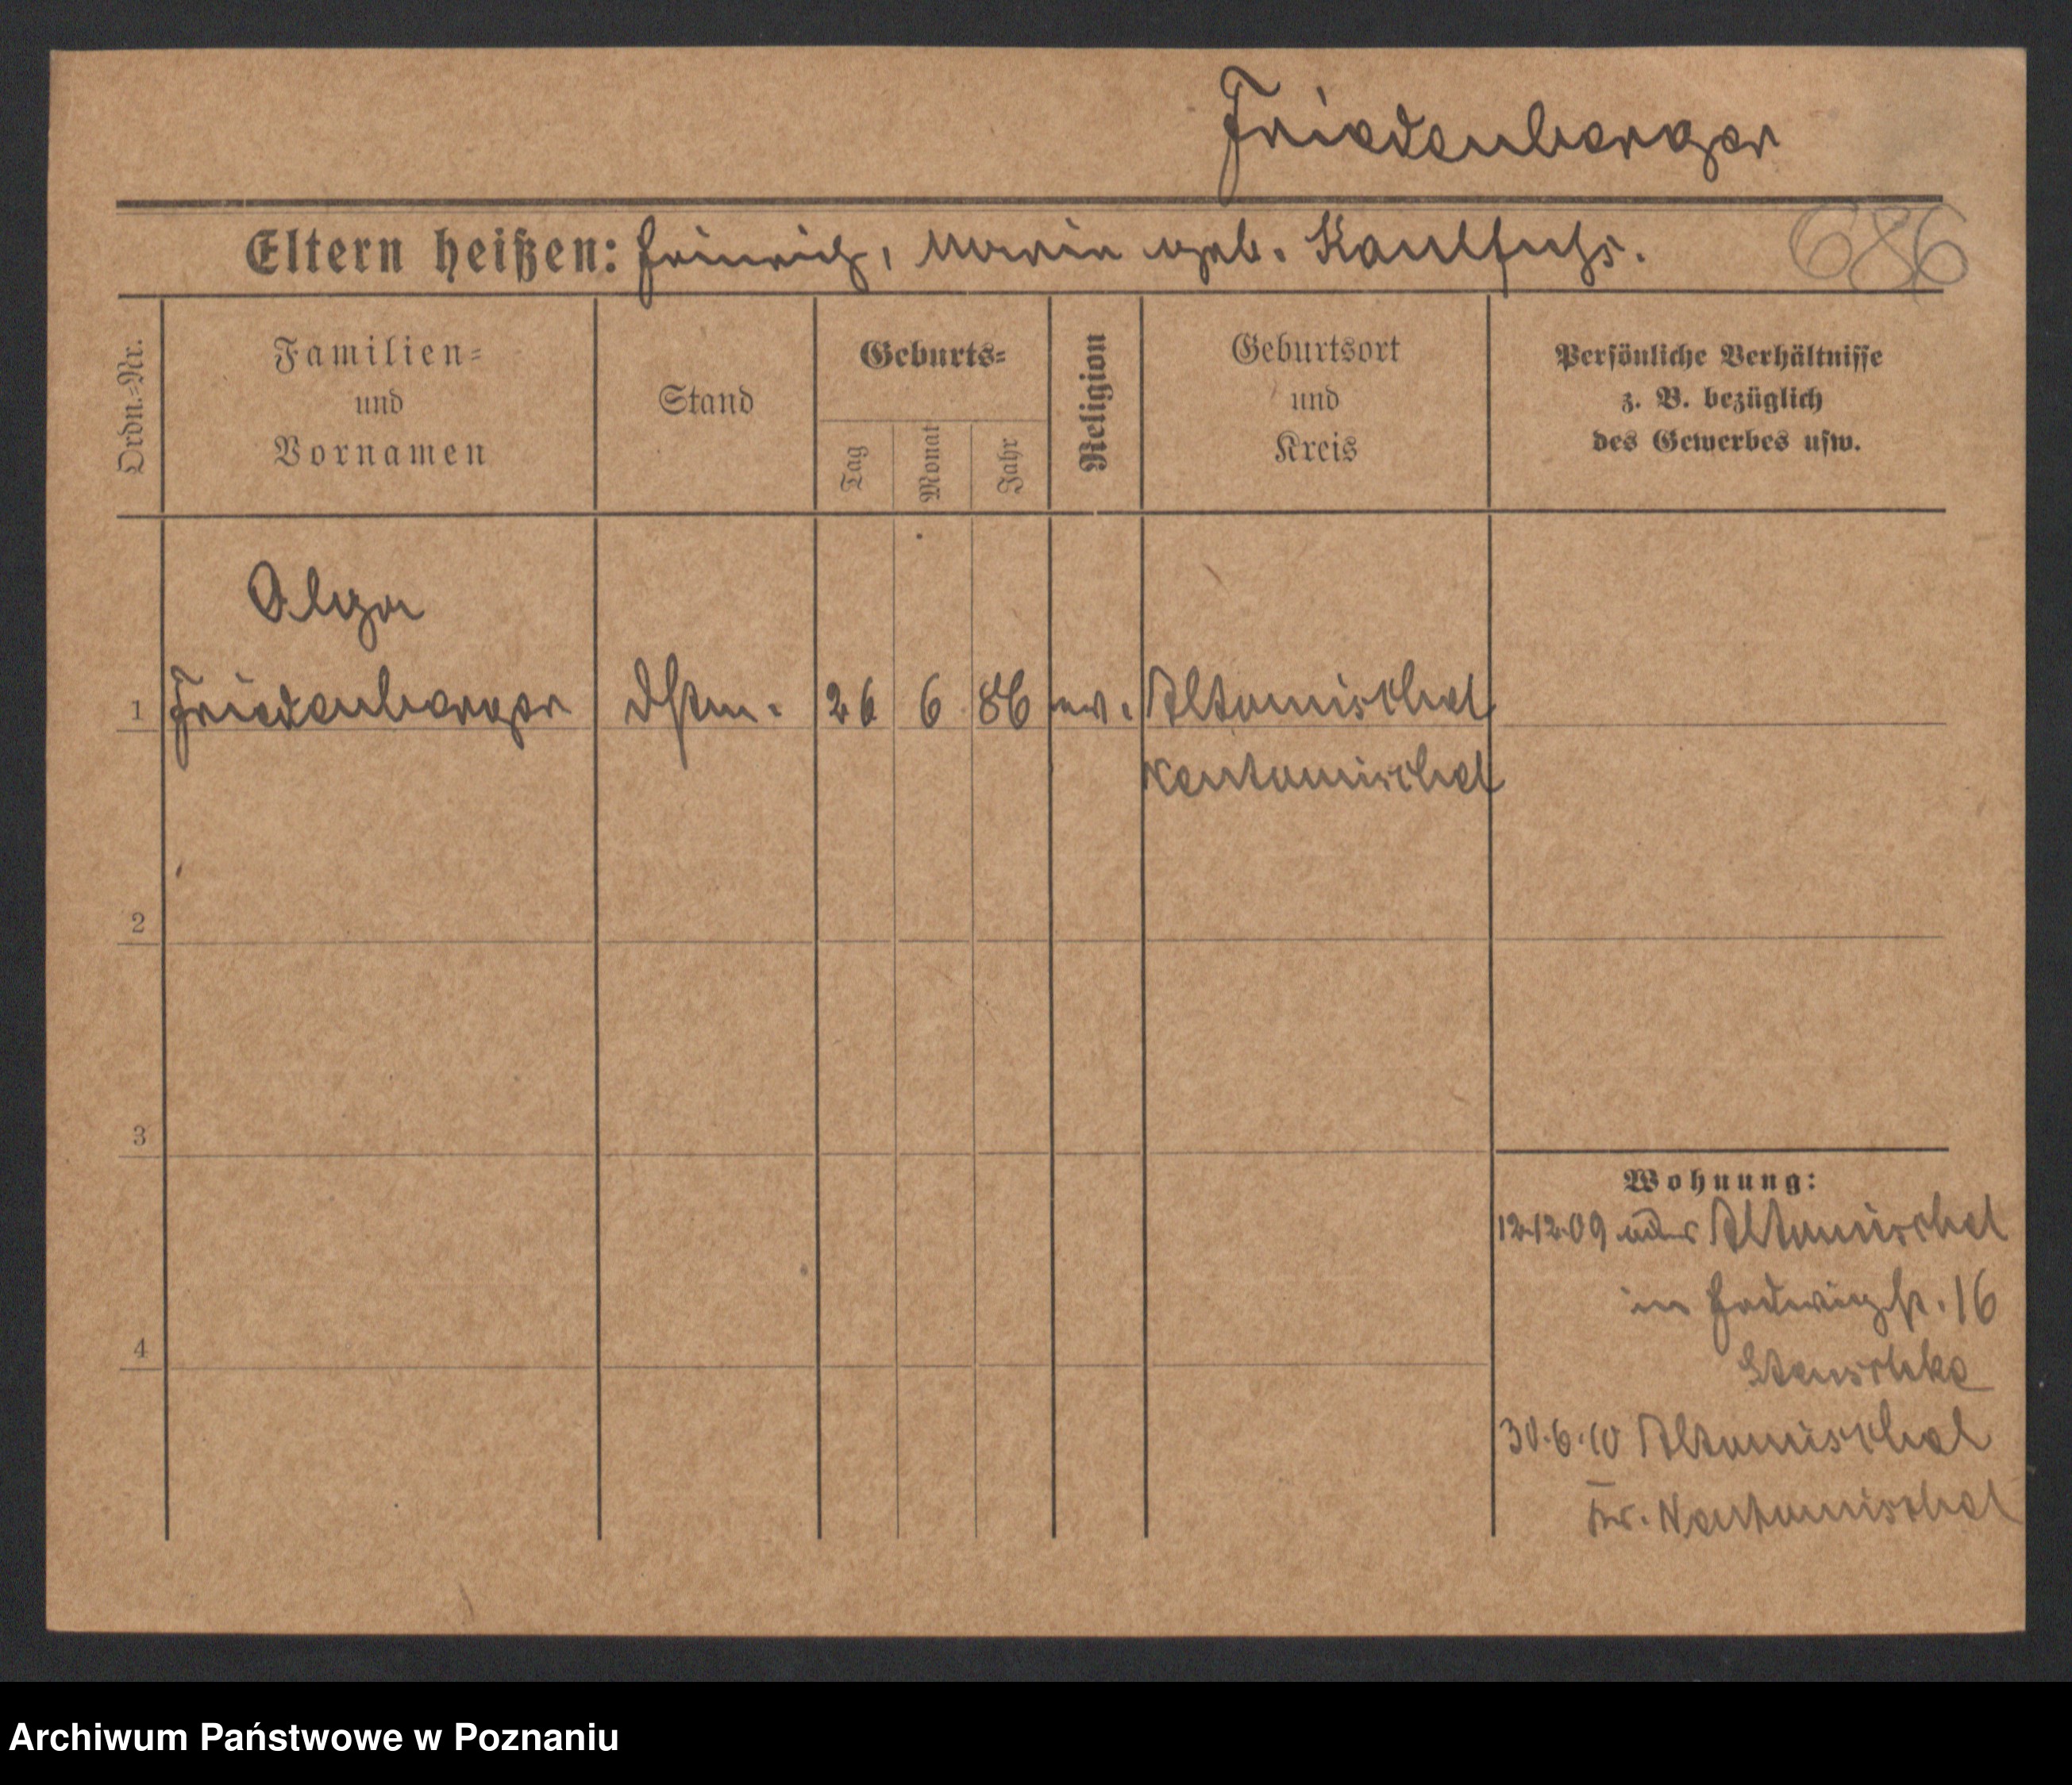 Friedenberger
Eltern heißen: Heinrich, Maria geb. Kaulfuhs.
686
Ordn.=Nr.
Familien=
und
Vornamen
Stand
Geburts=
Tag
Monat
Jahr
Religion
Geburtsort
und
Kreis
Persönliche Verhältnisse
z. B. bezüglich
des Gewerbes usw.
Olga
1 Friedenberger Dstm. 26 6 86 ev. Altomischel
Neutomischel
2
3
4
Wohnung:
12.12.09 aus Altomischel
in Hedwigstr. 16
30.6.10 Altomischel
Kr. Neutomischel
Archiwum Państwowe w Poznaniu